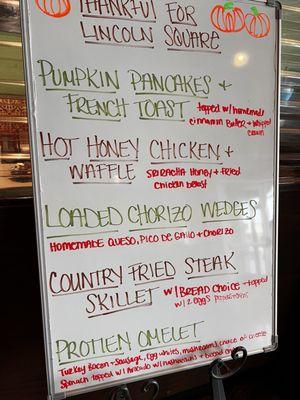 THANKFUL FOR
LINCOLN SQUARE
PUMPKIN PANCAKES +
FRENCH TOAST topped w/ homemade
cinnamon butter + whipped
cream
HOT HONEY CHICKEN +
WAFFLE SRIRACHA HONEY + FRIED
chicken breast
LOADED CHORIZO WEDGES
HOMEMADE QUESO, PICO DE GALLO + CHORIZO
COUNTRY FRIED STEAK
SKILLET w/ BREAD CHOICE + topped
w/ 2 eggs
PROTIEN OMELET
Turkey Bacon + Sausage, Egg whites, mushrooms, choice of cheese
Spinach topped w/ Avocado w/ hashbrowns + bread